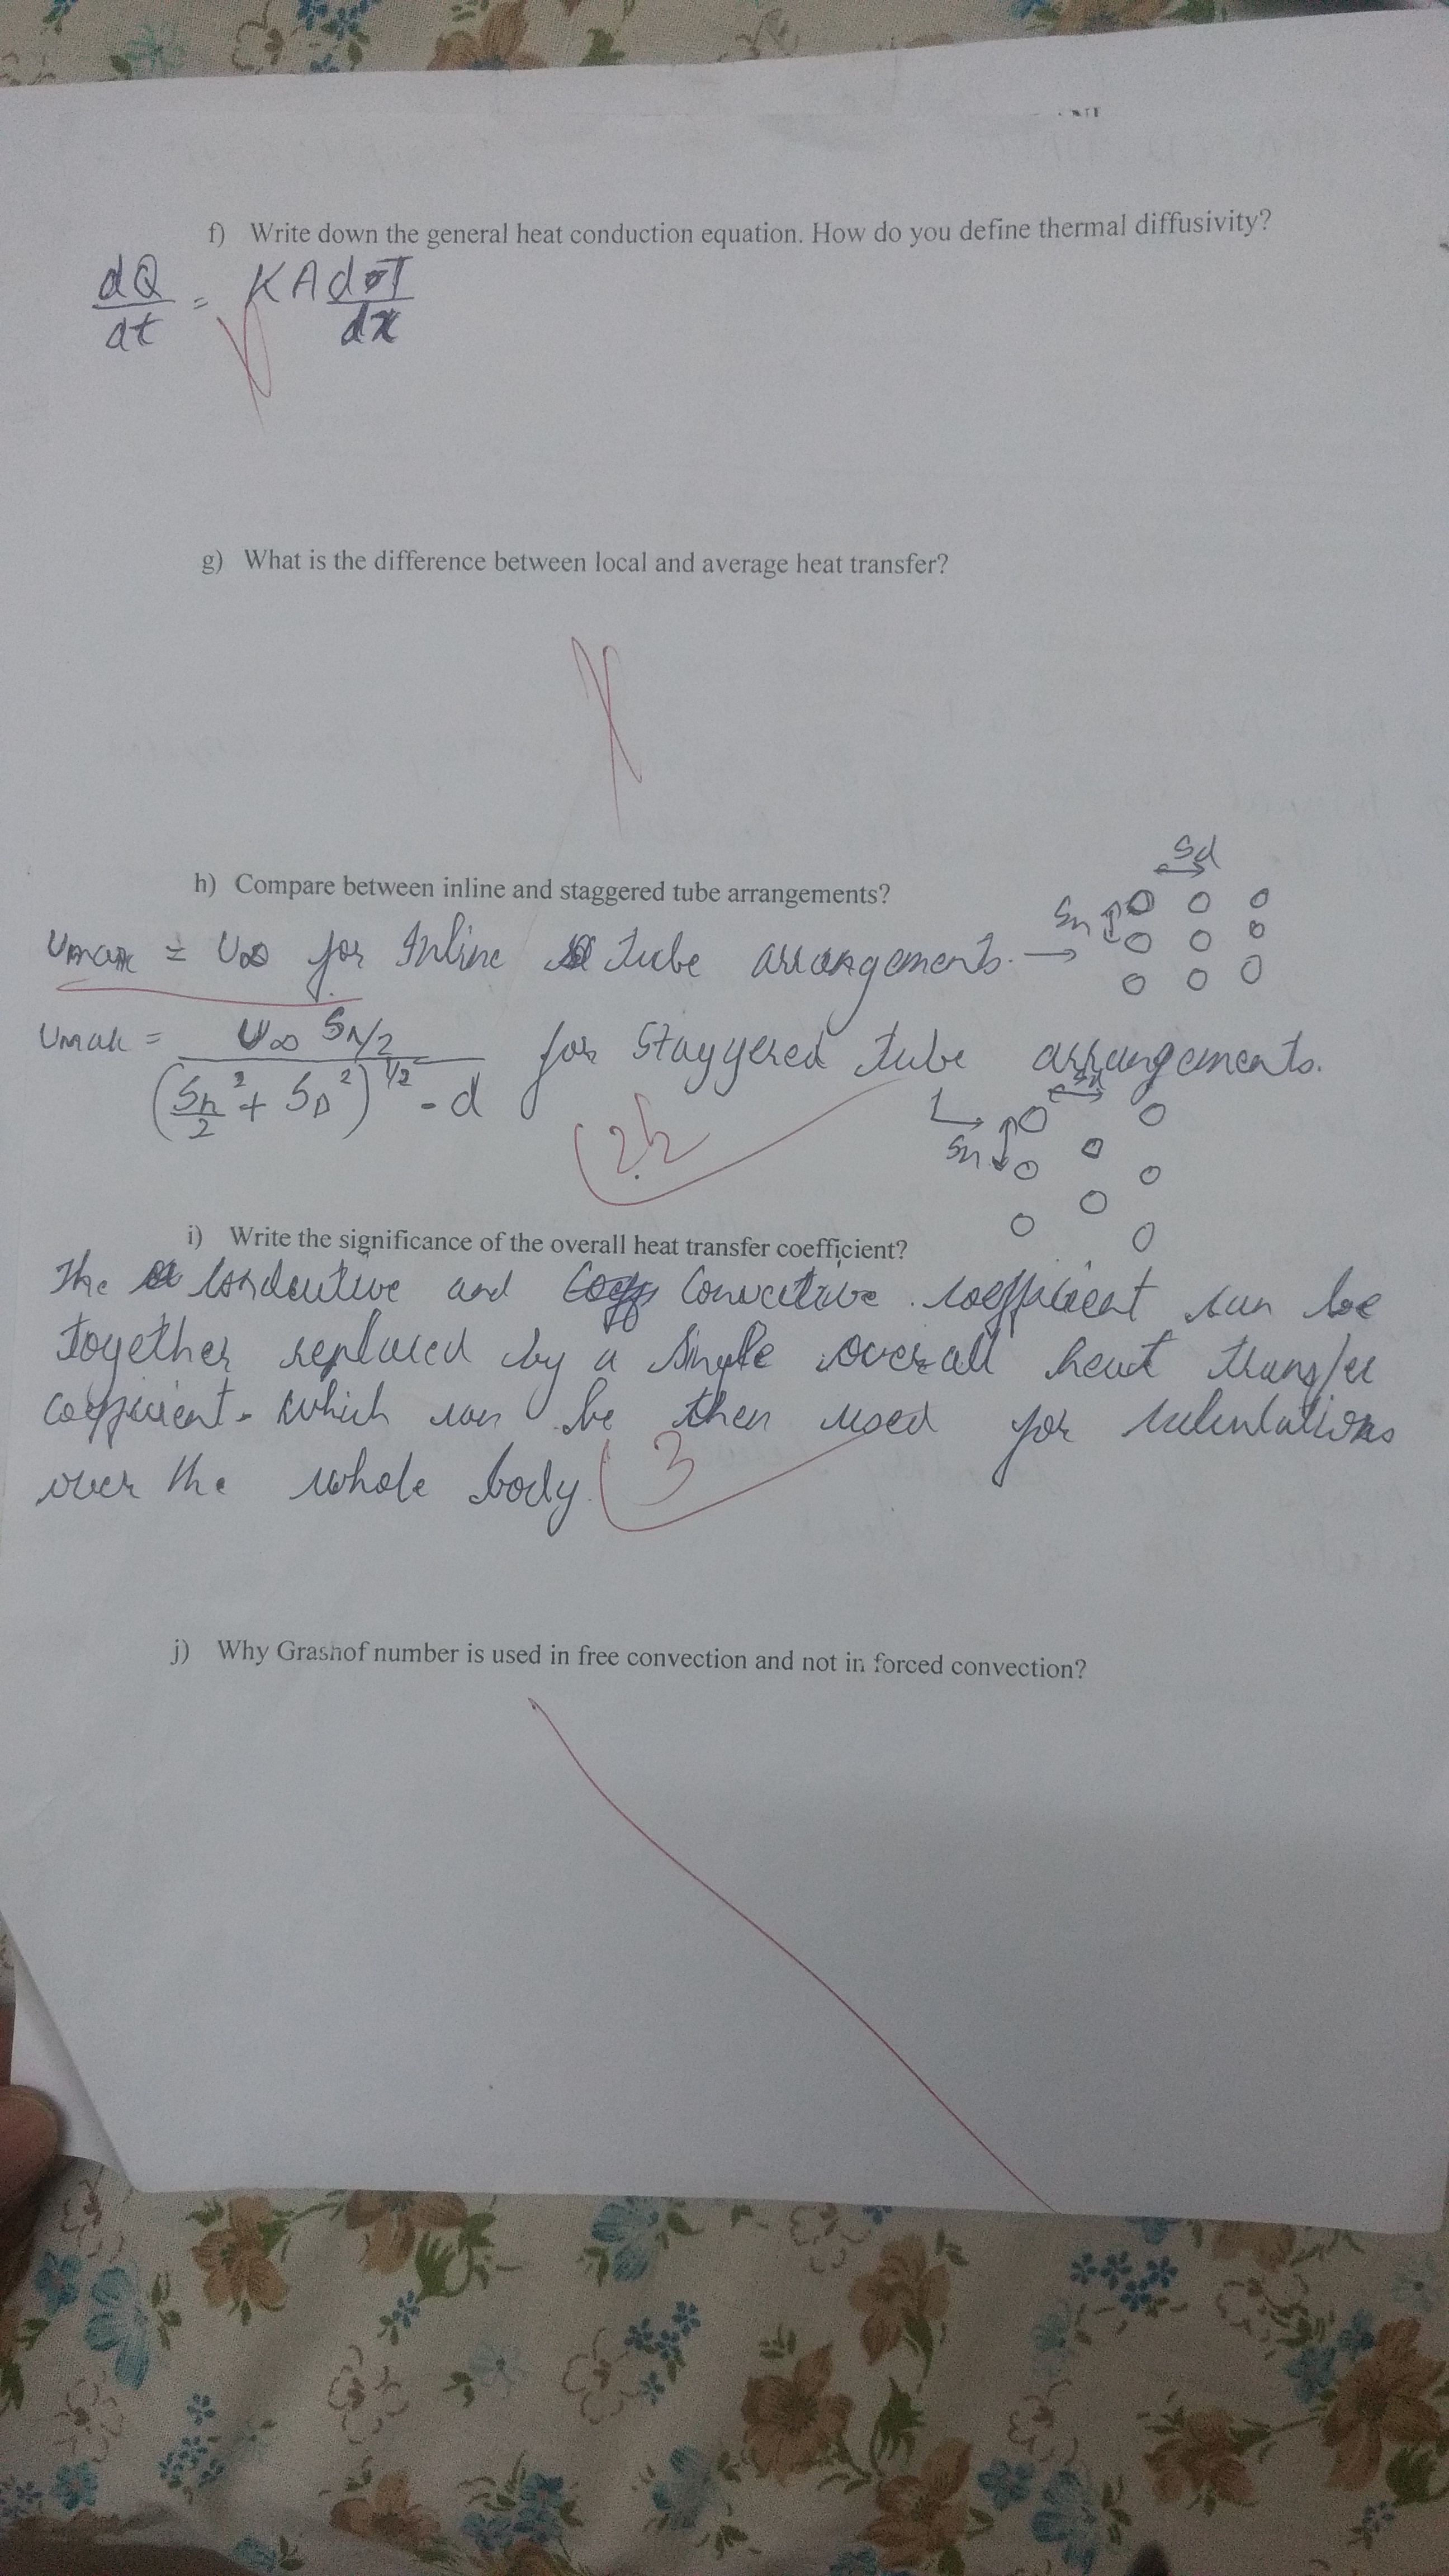 f) Write down the general heat conduction equation. How do you define thermal diffusivity?
dQ/dt = KA dT/dx
g) What is the difference between local and average heat transfer?
h) Compare between inline and staggered tube arrangements?
Sd
Sn
Umax = U∞ for Inline tube arrangements. →
Umax = U∞ Sn/2 / ((Sn/2)² + Sp²)^1/2 - d for staggered tube arrangements.
Sn
2½
i) Write the significance of the overall heat transfer coefficient?
The conductive and convective coefficient can be
together replaced by a single overall heat transfer
coefficient. which can be then used for calculations
over the whole body.
3
j) Why Grashof number is used in free convection and not in forced convection?